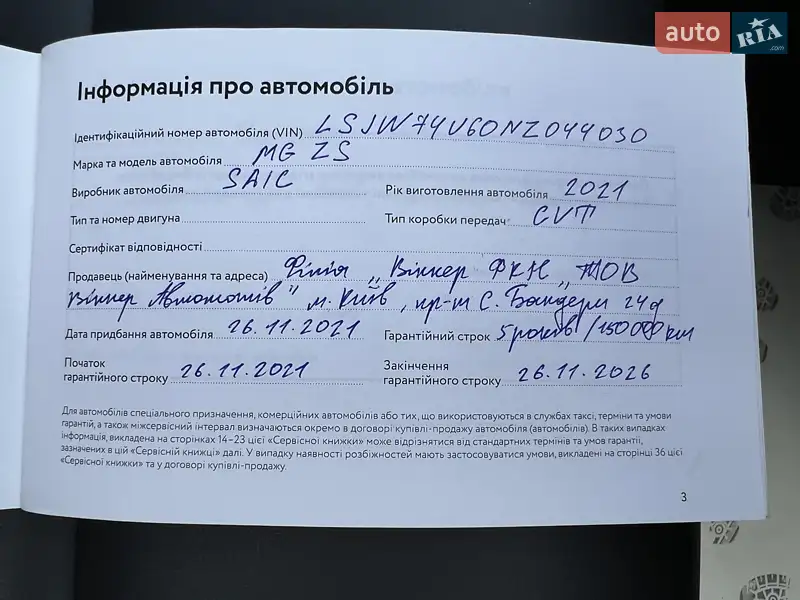 auto RIA
Інформація про автомобіль
Ідентифікаційний номер автомобіля (VIN) LSJW74U60NZ044030
Марка та модель автомобіля MG ZS
Виробник автомобіля SAIC Рік виготовлення автомобіля 2021
Тип та номер двигуна Тип коробки передач CVT
Сертифікат відповідності
Продавець (найменування та адреса) Філія „Віннер ФКН „ТОВ
Віннер Автомотів" м. Київ, пр-т С. Бандери 24д
Дата придбання автомобіля 26.11.2021 Гарантійний строк 5 років/150 000 км
Початок Закінчення
гарантійного строку 26.11.2021 гарантійного строку 26.11.2026
Для автомобілів спеціального призначення, комерційних автомобілів або тих, що використовуються в службах таксі, терміни та умови
гарантій, а також міжсервісний інтервал визначаються окремо в договорі купівлі-продажу автомобіля (автомобілів). В таких випадках
інформація, викладена на сторінках 14–23 цієї «Сервісної книжки» може відрізнятися від стандартних термінів та умов гарантії,
зазначених в цій «Сервісній книжці» далі. У випадку наявності розбіжностей мають застосовуватися умови, викладені на сторінці 36 цієї
«Сервісної книжки» та у договорі купівлі-продажу.
3